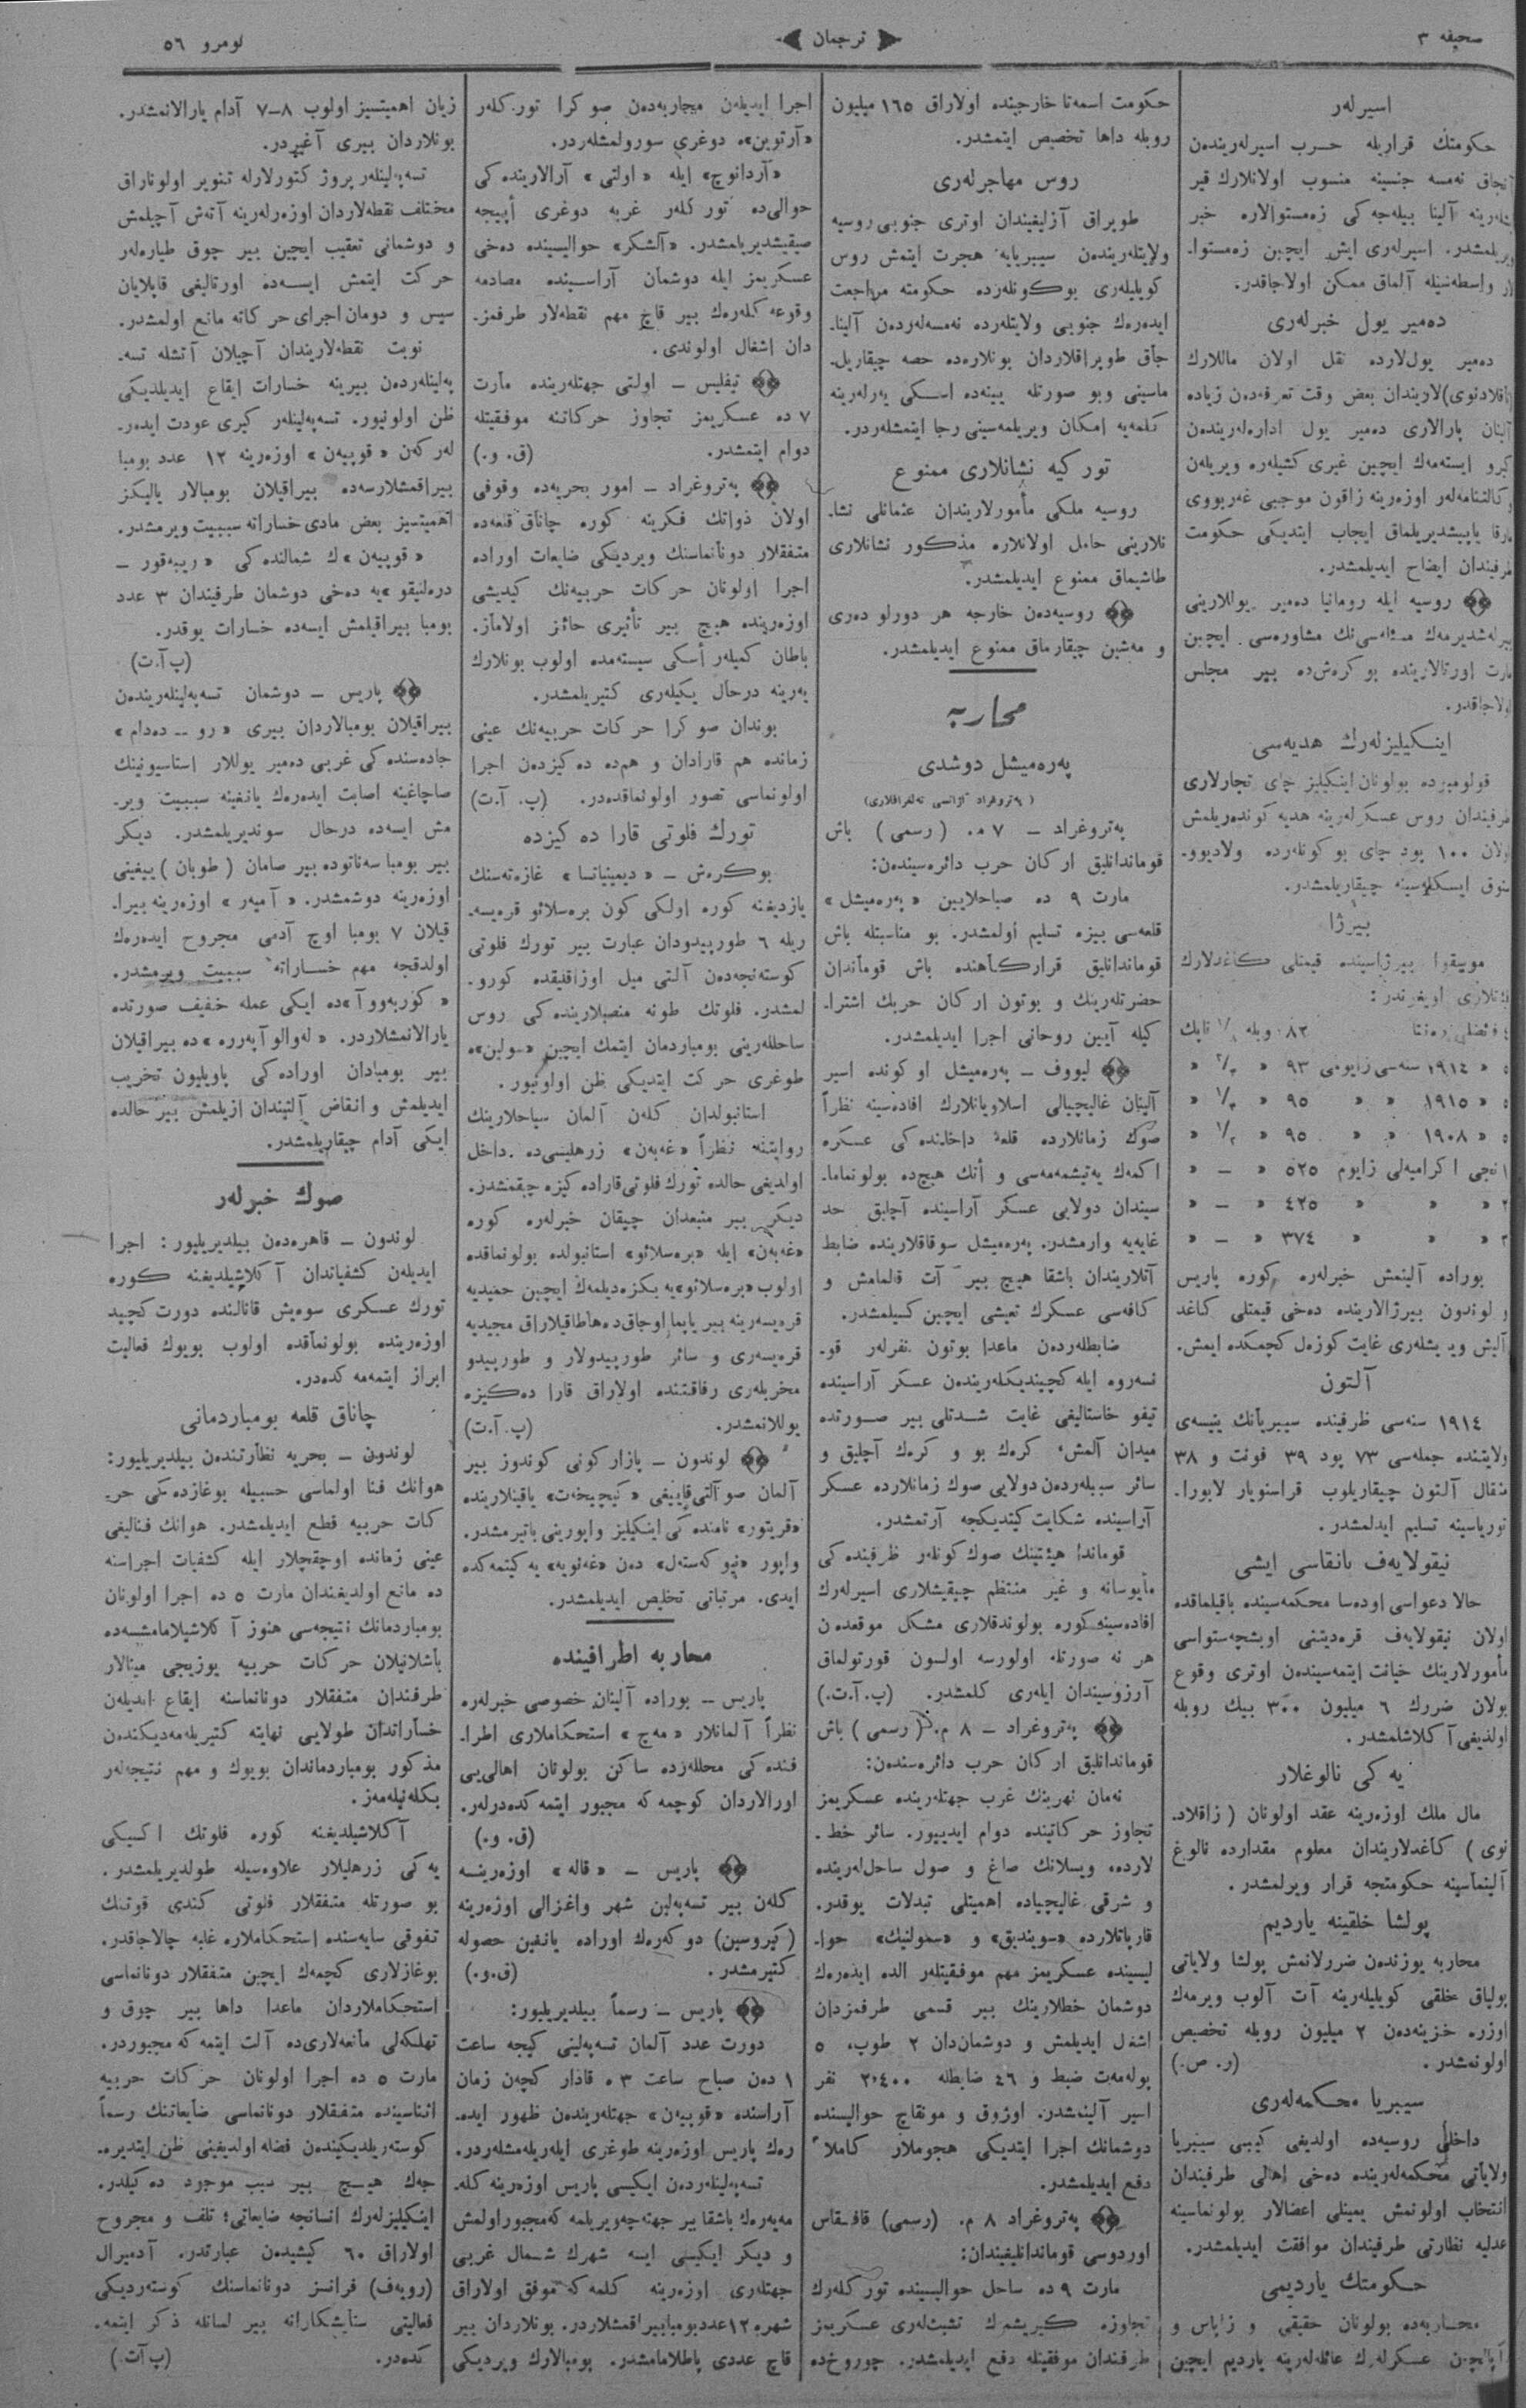 صحیفه ۳
ترجمان
نومرو ٥٦
اسیرلەر
حکومتڭ قراریله حرب اسیرلەریندەن
آنجاق نەمسه جنسینه منسوب اولانلارك قیر
ایشلەرینه آلینا بیلەجەکی زەمستوالارە خبر
ویریلمشدر. اسیرلەری ایش ایچین زەمستوا-
لار واسطەسیله آلماق ممکن اولاجاقدر.
دەمیر یول خبرلەری
دەمیر یوللاردە نقل اولان ماللارك
لاریندان بعض وقت تعرفەدەن زیادە
آلینان پارالاری دەمیر یول ادارەلەریندەن
گیرو ایستەمەك ایچین غیری کشیلەرە ویریلەن
وکالتنامەلەر اوزەرینه زاقون موجبی غەربووی
مارقا یاپیشدیریلماق ایجاب ایتدیکی حکومت
طرفیندان ایضاح ایدیلمشدر.
روسیه ایله رومانیا دەمیر یوللارینی
بیرلەشدیرمەك مسئلەسی‌نڭ مشاورەسی ایچین
مارت اورتالاریندە بوکرەش‌دە بیر مجلس
اولاجاقدر.
اینگیلیزلەرڭ هدیەسی
قولومبودە بولونان اینگیلیز چای تجارلاری
طرفیندان روس عسکرلەرینه هدیه کوندەریلمش
اولان ۱۰۰ پود چای بو کونلەردە ولادیوو-
ستوق ایسکلەسینه چیقاریلمشدر.
بیرژا
موسقوا بیرژاسیندە قیمتلی کاغدلارك
فیئاتلاری اویغرندر:
بورادە آلینمش خبرلەرە کورە پاریس
و لوندون بیرژالاریندە دەخی قیمتلی کاغد
آلیش ویریشلەری غایت کوزەل کچمکدە ایمش.
آلتون
۱۹۱٤ سنەسی ظرفیندە سیبریانڭ ینیسەی
ولایتندە جملەسی ۷۳ پود ۳۹ فونت و ۳۸
مثقال آلتون چیقاریلوب قراسنویار لابورا-
توریاسینه تسلیم ایدلمشدر.
نیقولایەف بانقاسی ایشی
حالا دعواسی اودەسا محکمەسیندە باقیلماقدە
اولان نیقولایەف قرەدیتنی اوبشچەستواسی
مأمورلارینڭ خیانت ایتمەسیندەن اوتری وقوع
بولان ضررك ٦ میلیون ۳۰۰ بیك روبله
اولدیغی آکلاشلمشدر.
یەکی نالوغلار
مال ملك اوزەرینه عقد اولونان (زاقلاد-
نوی) کاغدلاریندان معلوم مقداردە نالوغ
آلینماسینه حکومتجه قرار ویرلمشدر.
پولشا خلقینه یاردیم
محاربه یوزندەن ضررلانمش پولشا ولایاتی
پولیاق خلقی کویلیلەرینه آت آلوب ویرمەك
اوزرە خزینەدەن ۲ میلیون روبله تخصیص
اولونمشدر. (ر. ص.)
سیبریا محکمەلەری
داخلی روسیەدە اولدیغی کیبی سیبریا
ولایاتی محکمەلەریندە دەخی اهالی طرفیندان
انتخاب اولونمش یمینلی اعضالار بولونماسینه
عدلیه نظارتی طرفیندان موافقت ایدیلمشدر.
حکومتڭ یاردیمی
محاربەدە بولونان حقیقی و زاپاس و
آپالچین عسکرلەرك عائلەلەرینه یاردیم ایچین
حکومت اسمەتا خارجیندە اولاراق ۱٦٥ میلیون
روبله داها تخصیص ایتمشدر.
روس مهاجرلەری
طوپراق آزلیغیندان اوتری جنوبی روسیه
ولایتلەریندەن سیبریایه هجرت ایتمش روس
کویلیلەری بوکونلەردە حکومته مراجعت
ایدەرەك جنوبی ولایتلەردە نەمسەلەردەن آلینا-
جاق طوپراقلاردان بونلارەدە حصه چیقاریل-
ماسینی وبو صورتله یینەدە اسکی یەرلەرینه
کلمەیه امکان ویریلمەسینی رجا ایتمشلەردر.
تورکیه نشانلاری ممنوع
روسیه ملکی مأمورلاریندان عثمانلی نشا-
نلارینی حامل اولانلارە مذکور نشانلاری
طاشیماق ممنوع ایدیلمشدر.
روسیەدەن خارجه هر دورلو دەری
و مەشین چیقارماق ممنوع ایدیلمشدر.
محاربه
پەرەمیشل دوشدی
(پەتروغراد آژانسی تەلغرافلاری)
پەتروغراد – ۷ م. (رسمی) باش
قوماندانلیق ارکان حرب دائرەسیندەن:
مارت ۹ دە صباحلایین «پەرەمیشل»
قلعەسی بیزە تسلیم اولمشدر. بو مناسبتله باش
قوماندانلیق قرارگاهندە باش قوماندان
حضرتلەرینڭ و بوتون ارکان حربك اشترا-
کیله آیین روحانی اجرا ایدیلمشدر.
لبووف – پەرەمیشل اوکوندە اسیر
آلینان غالیچیالی اسلاویانلارك افادەسینه نظراً
صوڭ زمانلاردە قلعه داخلندەکی عسکرە
اکمەك یەتیشمەمەسی و أتڭ هیچدە بولونماما-
سیندان دولایی عسکر آراسیندە آچلیق حد
غایەیه وارمشدر. پەرەمیشل سوقاقلاریندە ضابط
آتلاریندان باشقا هیچ بیر آت قالمامش و
کافەسی عسکرك تعیشی ایچین کسیلمشدر.
ضابطلەردەن ماعدا بوتون نفرلەر قو-
نسەروه ایله کچیندیکلەریندەن عسکر آراسیندە
تیفو خاستالیغی غایت شدتلی بیر صورتدە
میدان آلمش، کرەك بو و کرەك آچلیق و
سائر سببلەردەن دولایی صوڭ زمانلاردە عسکر
آراسیندە شکایت کیتدیکجه آرتمشدر.
قوماندا هیئتینڭ صوڭ کونلەر ظرفیندەکی
مأیوسانه و غیر منتظم چیقیشلاری اسیرلەرك
افادەسینه کورە بولوندقلاری مشکل موقعدەن
هر نه صورتله اولورسه اولسون قورتولماق
آرزوسیندان ایلەری کلمشدر. (پ. آ.ت.)
پەتروغراد – ۸ م. (رسمی) باش
قوماندانلیق ارکان حرب دائرەسندەن:
نەمان نهرینڭ غرب جهتلەریندە عسکریمز
تجاوز حرکاتیندە دوام ایدییور. سائر خط-
لاردە، ویسلانڭ صاغ و صول ساحللەریندە
و شرقی غالیچیادە اهمیتلی تبدلات یوقدر.
قارپاتلاردە «سویدنیق» و «سمولنیك» حوا-
لیسیندە عسکریمز مهم موفقیتلەر الدە ایدەرەك
دوشمان خطلارینڭ بیر قسمی طرفمزدان
اشغال ایدیلمش و دوشمان‌دان ۲ طوپ، ٥
پولەمەت ضبط و ٤٦ ضابطله ۲،٤۰۰ نفر
اسیر آلینمشدر. اوژوق و مونقاچ حوالیسندە
دوشمانڭ اجرا ایتدیکی هجوملار کاملاً
دفع ایدیلمشدر.
پەتروغراد ۸ م. (رسمی) قافقاس
اوردوسی قوماندانلیغیندان:
مارت ۹ دە ساحل حوالیسیندە تورکلەرك
تجاوزە گیریشمەك تشبثلەری عسکریمز
طرفندان موفقیتله دفع ایدیلمشدر. چوروخ‌دە
اجرا ایدیلەن محاربەدەن صوکرا تورکلەر
«آرتوین»ه دوغری سورولمشلەردر.
«آردانوچ» ایله «اولتی» آرالاریندەکی
حوالی‌دە تورکلەر غربه دوغری أپیجه
صیقیشدیریلمشدر. «آلشکر» حوالیسیندە دەخی
عسکریمز ایله دوشمان آراسیندە مصادمه
وقوعه کلەرەك بیر قاچ مهم نقطەلار طرفمز-
دان اشغال اولوندی.
تیفلیس – اولتی جهتلەریندە مارت
۷ دە عسکریمز تجاوز حرکاتنه موفقیتله
دوام ایتمشدر. (ق. و.)
پەتروغراد – امور بحریەدە وقوفی
اولان ذواتڭ فکرینه کورە چاناق قلعەدە
متفقلار دونانماسنڭ ویردیکی ضایعات اورادە
اجرا اولونان حرکات حربیەنڭ کیدیشی
اوزەریندە هیچ بیر تأثیری حائز اولاماز.
باطان کمیلەر أسکی سیستەمدە اولوب بونلارك
یەرینه درحال یکیلەری کتیریلمشدر.
بوندان صوکرا حرکات حربیەنڭ عینی
زماندە هم قارادان و همدە دەکیزدەن اجرا
اولونماسی تصور اولونماقدەدر. (پ. آ.ت)
تورك فلوتی قارا دەکیزدە
بوکرەش – «دیمینیاتسا» غازەتەسنڭ
یازدیغنه کورە اولکی کون برەسلاو قرەیسە-
ریله ٦ طورپیدودان عبارت بیر تورك فلوتی
کوستەنجەدەن آلتی میل اوزاقلیقدە کورو-
لمشدر. فلوتڭ طونه منصبلاریندەکی روس
ساحللەرینی بومباردمان ایتمك ایچین «سولین»ه
طوغری حرکت ایتدیکی ظن اولونیور.
استانبولدان کلەن آلمان سیاحلارینڭ
روایتنه نظراً «غەبەن» زرهلیسی‌دە داخل
اولدیغی حالدە تورك فلوتی قارادەکیزە چیقمشدر.
دیکر بیر منبعدان چیقان خبرلەرە کورە
«غەبەن» ایله «برەسلاو» استانبولدە بولونماقدە
اولوب «برەسلاو»یه بکزەدیلمەك ایچین حمیدیه
قرەیسەرینه بیر یاپما اوجاق دەها طاقیلاراق مجیدیه
قرەیسەری و سائر طورپیدولار و طورپیدو
مخربلەری رفاقتندە اولاراق قارا دەکیزە
یوللانمشدر. (پ. آ.ت)
لوندون – پازارکونی کوندوز بیر
آلمان صوآلتی قاییغی «کیچیخەت» یاقینلاریندە
«قریتور» نامندە کی اینگیلیز واپورینی باتیرمشدر.
واپور «نیو کەستەل» دەن «غەنویه»یه کیتمەکدە
ایدی. مرتباتی تخلیص ایدیلمشدر.
محاربه اطرافیندە
پاریس – بورادە آلینان خصوصی خبرلەرە
نظراً آلمانلار «مەچ» استحکاملاری اطرا-
فندەکی محللەردە ساکن بولونان اهالی‌یی
اورالاردان کوچمەکه مجبور ایتمەکدەدرلەر.
(ق. و.)
پاریس – «قاله» اوزەرینه
کلەن بیر تسەپەلین شهر واغزالی اوزەرینه
(کیروسین) دوکەرەك اورادە یانغین حصوله
کتیرمشدر. (ق.و.)
پاریس – رسماً بیلدیریلیور:
دورت عدد آلمان تسەپەلینی کیجه ساعت
۱ دەن صباح ساعت ۳ ه قادار کچەن زمان
آراسندە «قوپیەن» جهتلەریندەن ظهور ایدە-
رەك پاریس اوزەرینه طوغری ایلەریلەمشلەردر.
تسەپەلینلەردەن ایکیسی پاریس اوزەرینه کلە-
مەیەرەك باشقا بیر جهته چەویریلمه که مجبور اولمش
و دیکر ایکیسی ایسه شهرك شمال غربی
جهتلەری اوزەرینه کلمەکه موفق اولاراق
شهرە ۱۲ عدد بومبا بیراقمشلاردر. بونلاردان بیر
قاچ عددی پاطلامامشدر. بومبالارك ویردیکی
زیان اهمیتسیز اولوب ۸–۷ آدام یارالانمشدر.
بونلاردان بیری آغیردر.
تسەپەلینلەر پروژکتورلارله تنویر اولوناراق
مختلف نقطەلاردان اوزەرلەرینه آتەش آچیلمش
و دوشمانی تعقیب ایچین بیر چوق طیارەلەر
حرکت ایتمش ایسەدە اورتالیغی قاپلایان
سیس و دومان اجرای حرکاته مانع اولمشدر.
نوبت نقطەلاریندان آچیلان آتشله تسە-
پەلینلەردەن بیرینه خسارات ایقاع ایدیلدیکی
ظن اولونیور. تسەپەلینلەر کیری عودت ایدە-
لەرکەن «قوپیەن» اوزەرینه ۱۲ عدد بومبا
بیراقمشلارسەدە بیراقیلان بومبالار یالیکز
اهمیتسیز بعض مادی خساراته سببیت ویرمشدر.
«قوپیەن»ك شمالندەکی «ریبەقور –
درەلنیقو»یه دەخی دوشمان طرفیندان ۳ عدد
بومبا بیراقیلمش ایسەدە خسارات یوقدر.
(پ آ.ت)
پاریس – دوشمان تسەپەلینلەریندەن
بیراقیلان بومبالاردان بیری «رو – دەدام»
جادەسندەکی غربی دەمیر یوللار استاسیونینڭ
صاچاغینه اصابت ایدەرەك یانغینه سببیت ویر-
مش ایسەدە درحال سوندیریلمشدر. دیکر
بیر بومبا سەناتودە بیر صامان (طوپان) ییغینی
اوزەرینه دوشمشدر. «آمیەر» اوزەرینه بیرا-
قیلان ۷ بومبا اوچ آدمی مجروح ایدەرەك
اولدقجه مهم خساراته سببیت ویرمشدر.
«کوربەووآ»دە ایکی عمله خفیف صورتدە
یارالانمشلاردر. «لەوالوآپەررە»دە بیراقیلان
بیر بومبادان اورادەکی پاویلیون تخریب
ایدیلمش و انقاض آلتیندان ازیلمش بیر حالدە
ایکی آدام چیقاریلمشدر.
صوك خبرلەر
لوندون – قاهرەدەن بیلدیریلیور: اجرا
ایدیلەن کشفیاتدان آکلاشیلدیغنه کورە
تورك عسکری سوەیش قانالندە دورت کچید
اوزەریندە بولونماقدە اولوب بویوك فعالیت
ابراز ایتمەمەکدەدر.
چاناق قلعه بومباردمانی
لوندون – بحریه نظارتندەن بیلدیریلیور:
هوانڭ فنا اولماسی حسبیله بوغازدەکی حر-
کات حربیه قطع ایدیلمشدر. هوانڭ فنالیغی
عینی زماندە اوچقچلار ایله کشفیات اجراسنه
دە مانع اولدیغندان مارت ٥ دە اجرا اولونان
بومباردمانڭ نتیجەسی هنوز آکلاشیلامامشسەدە
باشلانیلان حرکات حربیه یوزیجی مینالار
طرفندان متفقلار دونانماسنه ایقاع ایدیلەن
خساراتدان طولایی نهایته کتیریلەمەدیکندەن
مذکور بومباردماندان بویوك و مهم نتیجەلەر
بکلەنیلەمەز.
آکلاشیلدیغنه کورە فلوتڭ اکسیکی
یەکی زرهلیلار علاوەسیله طولدیریلمشدر.
بو صورتله متفقلار فلوتی کندی قوتنڭ
تفوقی سایەسندە استحکاملارە غلبه چالاجاقدر.
بوغازلاری کچمەك ایچین متفقلار دونانماسی
استحکاملاردان ماعدا داها بیر چوق و
تهلکەلی مانعەلاری‌دە آلت ایتمەکه مجبوردر.
مارت ٥ دە اجرا اولونان حرکات حربیه
اثناسیندە متفقلار دونانماسی ضایعاتنڭ رسماً
کوستەریلدیکیندەن فضله اولدیغینی ظن ایتدیرە-
جەك هیچ بیر سبب موجود دەکیلدر.
اینگیلیزلەرك انسانجه ضایعاتی؛ تلف و مجروح
اولاراق ٦۰ کیشیدەن عبارتدر. آدمیرال
(روبەف) فرانسز دونانماسنڭ کوستەردیکی
فعالیتی ستایشکارانه بیر لسانله ذکر ایتمە-
کدەدر. (پ آت.)